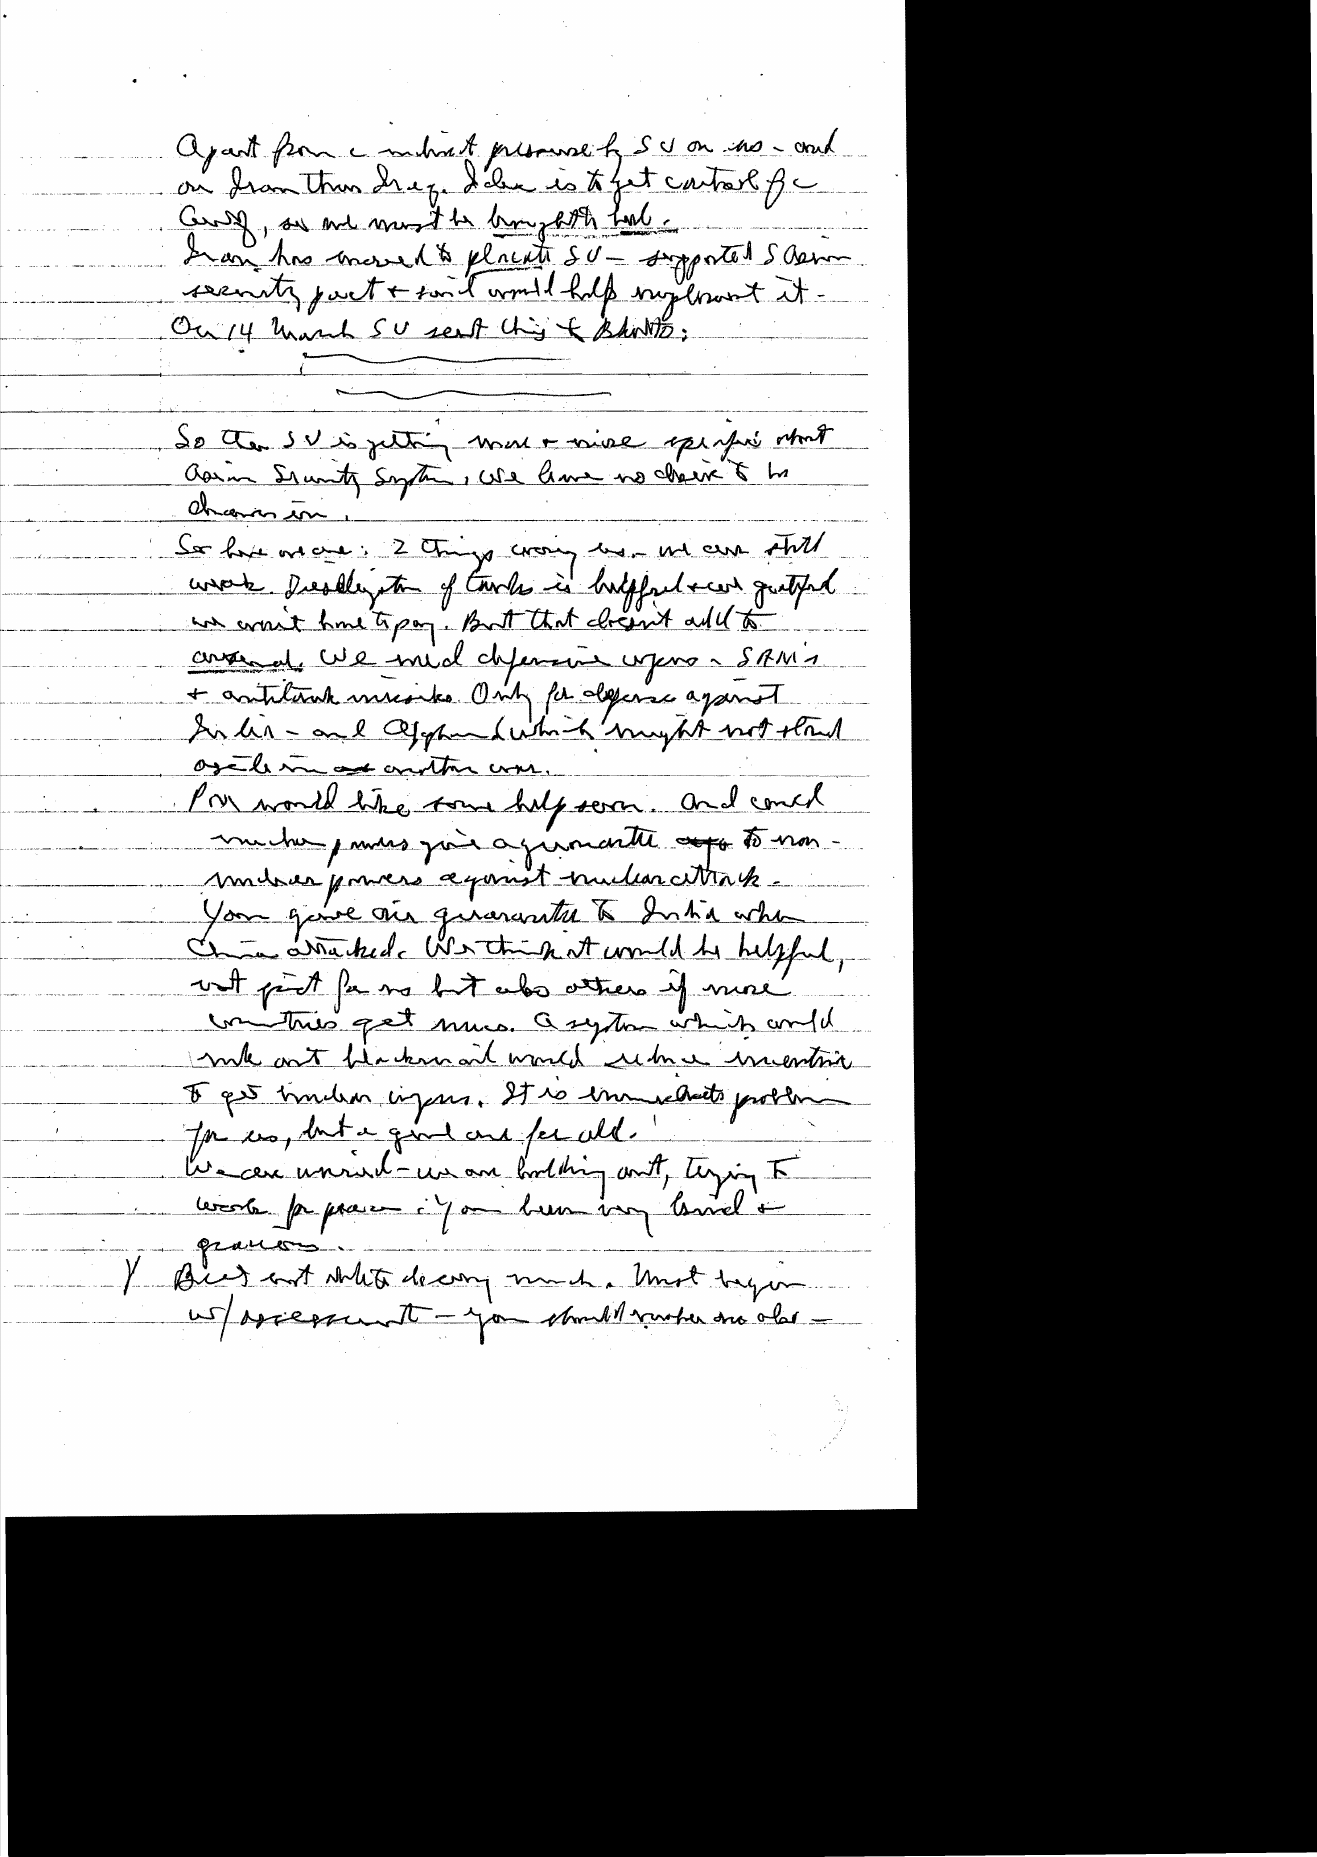 Apart from c indirect pressure by SU on us - and
on Iran thru Iraq. Idea is to get control of c
Gulf, so we must be brought to heel.
Iran has moved to placate SU - supported S Asian
security pact + said would help implement it -
On 14 March SU sent this to Bhutto:
So then SU is getting more + more specific about
Asian Security System, we have no choice to be
drawn in.
So here we are: 2 things worry us - we are still
weak. of tanks is helpful + are grateful
we won't have to pay. But that doesn't add to
arsenal. We need defensive wpns - SAM's
+ antitank missiles. Only for defense against
India - and Afghan (which might not stand
aside in another war.
PM would like some help soon. And could
nuclear powers give a guarantee to non-
nuclear powers against nuclear attack -
You gave air guarantee to India when
China attacked. We think it would be helpful,
not just for us but also others if more
countries get nucs. A system which could
rule out blackmail would reduce incentive
to get nuclear wpns. It is immediate problem
for us, but a good one for all.
We are worried - we are holding out, trying to
work for peace. You been very kind +
gracious.
Y But not able to do very much. Must begin
w/ assessment - you should number one also -